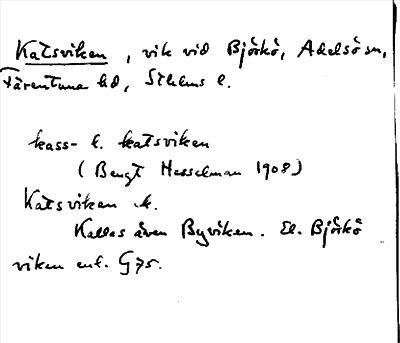 Katsviken, vik vid Björkö, Adelsö sn,
Färentuna hd, Sthlms l.
kass- l. katsviken
(Bengt Hesselman 1908)
Katsviken k.
Kallas även Byviken. El. Björkö
viken enl. G75.